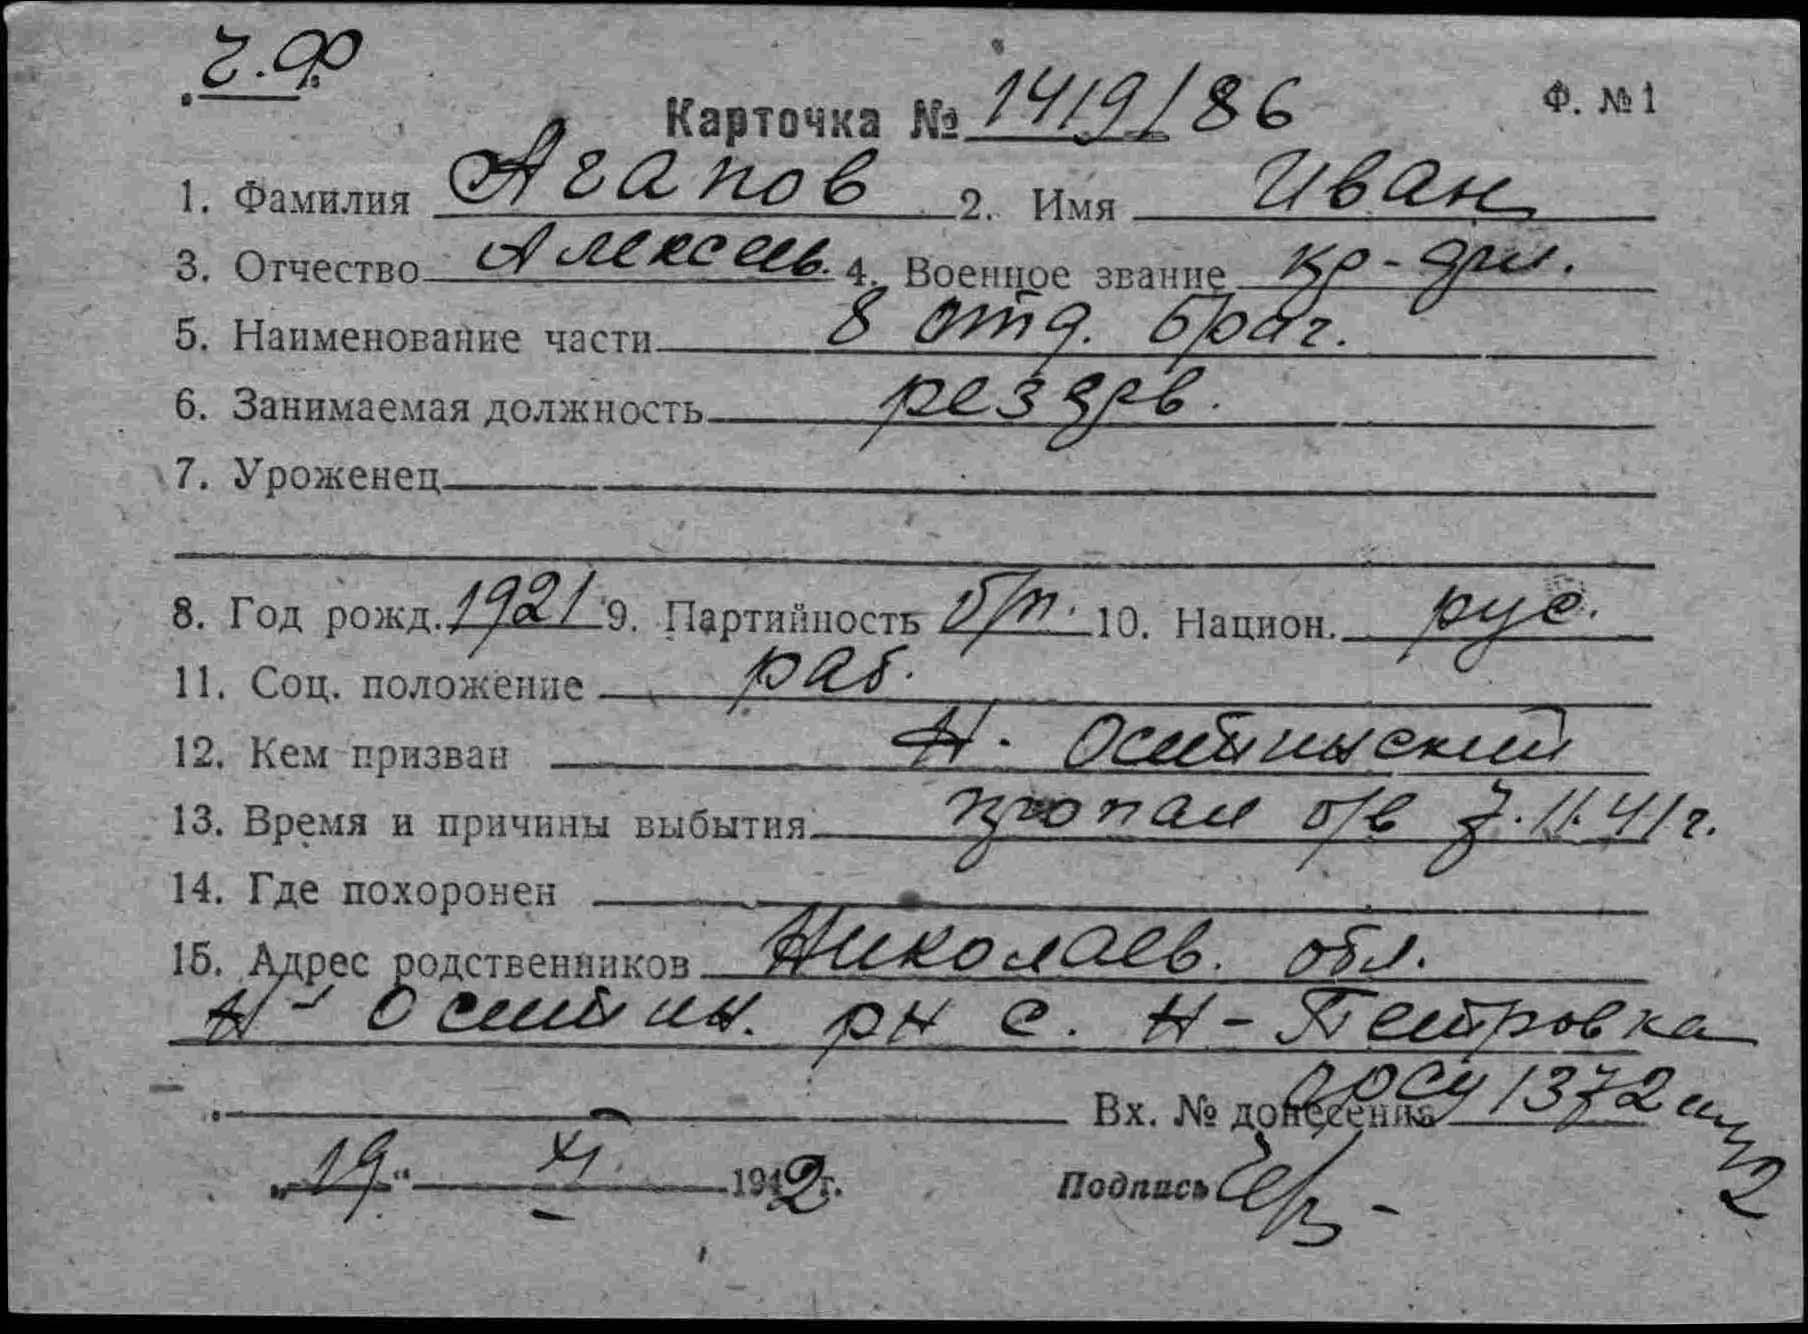 Ч.Ф
Карточка № 1419/86 Ф. № 1
1. Фамилия Агапов 2. Имя Иван
3. Отчество Алексеев. 4. Военное звание кр-фл.
5. Наименование части 8 отд. браг.
6. Занимаемая должность резерв.
7. Уроженец
8. Год рожд. 1921 9. Партийность б/п. 10. Национ. рус.
11. Соц. положение раб.
12. Кем призван Н. Осипинский
13. Время и причины выбытия пропал б/в 7.11.41 г.
14. Где похоронен
15. Адрес родственников Николаев. обл.
Н-Осипин. рн с. Н-Петровка
Вх. № донесения 1372
„19“ XI. 1942 г. Подпись